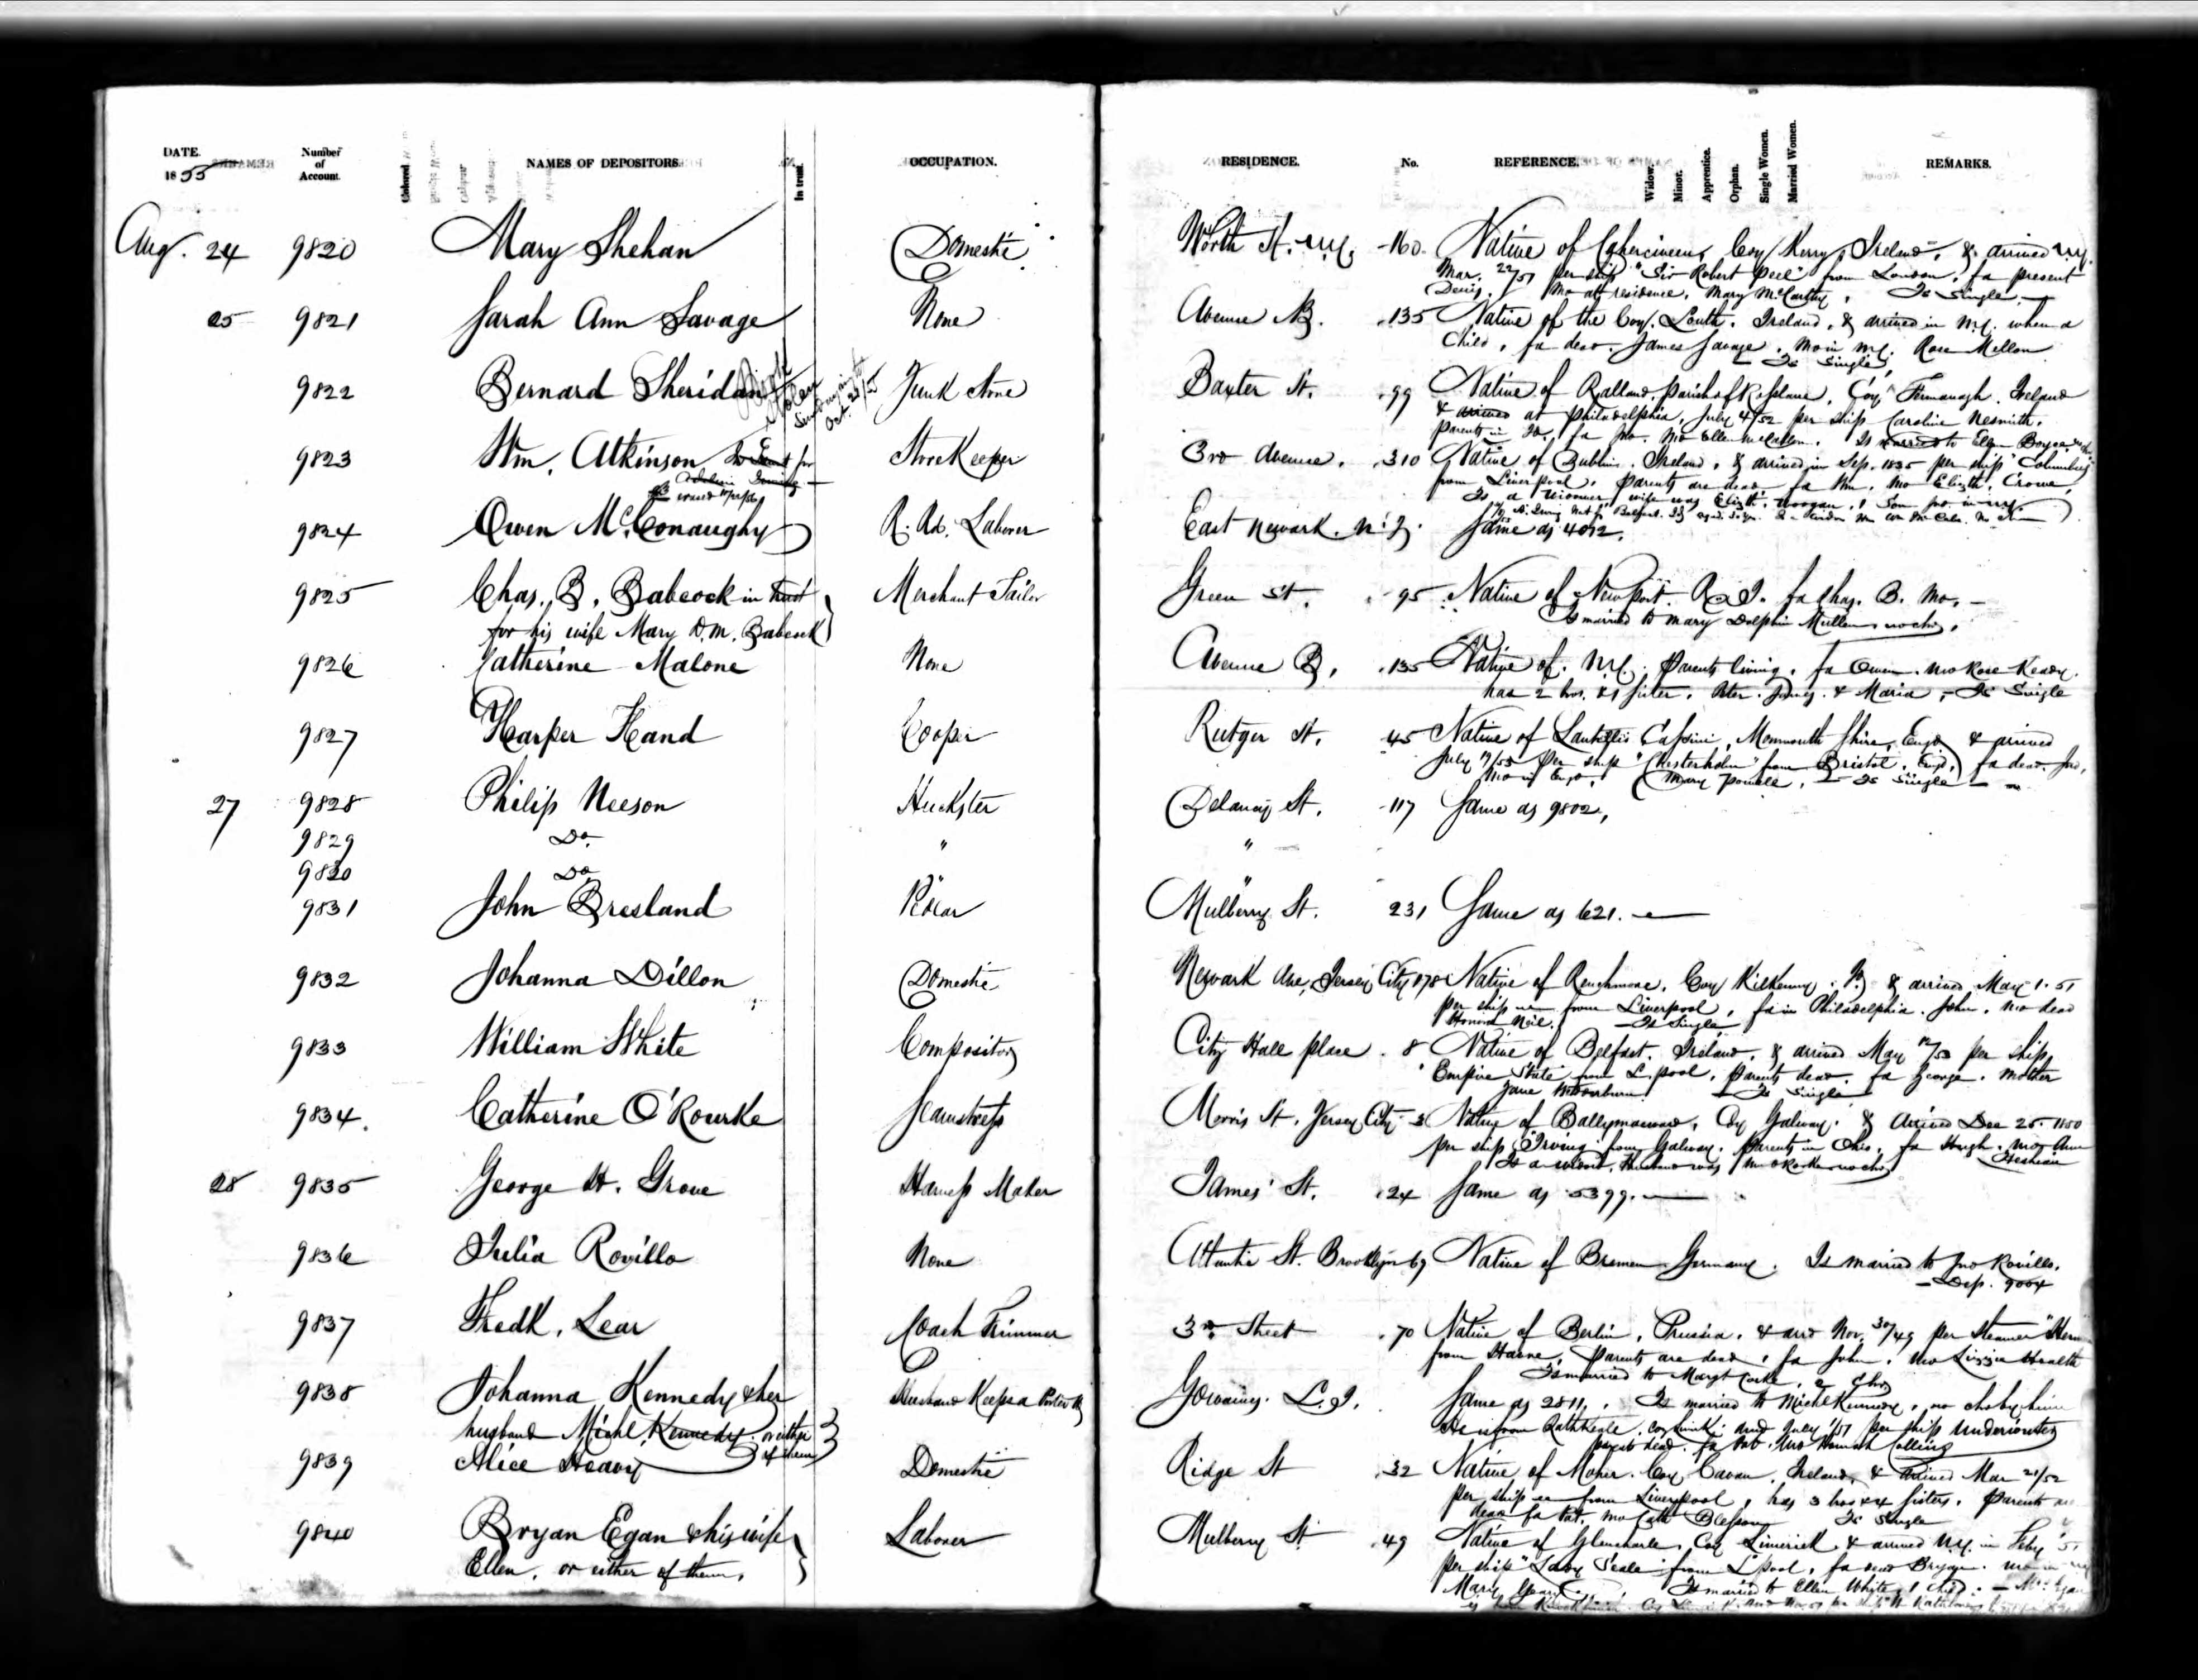 DATE. Number of Account. NAMES OF DEPOSITORS. In trust. OCCUPATION. RESIDENCE. No. REFERENCE. Widow. Minor. Apprentice. Orphan. Single Women. Married Women. REMARKS.
1855
Aug. 24 9820 Mary Shehan Domestic Worth St. N.Y. 160 Native of Cahercineen, Coy Kerry, Ireland, & arrived N.Y.
Mar. 22/51 per ship "Sir Robert Peel" from London, fa present
Denis. Mo at residence, Mary McCarthy, Is Single
25 9821 Sarah Ann Savage None Avenue B. 135 Native of the Coy. Louth. Ireland, & arrived in N.Y. when a
Child, fa dead. James Savage. Mo in N.Y. Rose Mellon
Is Single
9822 Bernard Sheridan Book Stolen Oct. Junk Store Baxter St. 99 Native of Coy. Fermanagh. Ireland
& arrived at Philadelphia, July 4/52 per ship Caroline Nesmith.
Parents in fa Jno. Mo Ellen McCallen. Is married to
9823 Wm. Atkinson StoreKeeper 3rd Avenue. 310 Native of Dublin. Ireland, & arrived in Sep. 1835 per ship "Columbus"
from Liverpool. Parents are dead fa Wm. Mo Elizth. Crowe,
Is a widower, wife was Elizth. 1 Son Jno. in N.Y.
9824 Owen McConaughy R. Rd. Laborer East Newark. N.J. Same as 4092.
9825 Chas. B. Babcock in trust Merchant Tailor Green St. 95 Native of Newport. R.I. fa Chas. B. Mo. —
for his wife Mary D.M. Babcock Is married to Mary Dolphin Mullen no chn.
9826 Catherine Malone None Avenue B. 135 Native of N.Y. Parents living. fa Owen. Mo Rose Keady.
has 2 bros. & 1 sister. Peter. James. & Maria — Is Single
9827 Harper Hand Cooper Rutger St. 45 Native of Monmouth Shire, Engd & arrived
July 17/53 per ship "Chesterholm" from Bristol. Engd. fa dead. Jno.
Mo in Engd. (Mary Powell. — Is Single —
27 9828 Philip Neeson Huckster Delancy St. 117 Same as 9802.
9829 Do. " "
9830 Do. " "
9831 John Bresland Pedlar Mulberry St. 231 Same as 621.
9832 Johanna Dillon Domestic Newark Ave, Jersey City 178 Native of Coy Kilkenny. & arrived May 1. 51
per ship from Liverpool, fa in Philadelphia. John. Mo dead
Honora Neil. — Is Single
9833 William White Compositor City Hall place. 8 Native of Belfast. Ireland. & arrived May 12/53 per ship
"Empire State" from L.pool. Parents dead. fa George. Mother
Jane — Is Single
9834 Catherine O'Rourke Seamstress Morris St. Jersey City 3 Native of Coy Galway. & arrived Dec 25. 1850
per ship "Irving" from Galway. Parents in Ohio. fa Hugh. Mo Ann
Is a widow. Husband was no chn
28 9835 George H. Grove Harness Maker James' St. 24 Same as 5399.
9836 Julia Rovillo None Atlantic St. Brooklyn 69 Native of Bremen Germany. Is married to Jno Rovillo.
— Dep. 9004
9837 Fredk. Lear Coach Trimmer 3rd Street 70 Native of Berlin. Prussia. & arrd Nov. 30/49 per Steamer
from Havre. Parents are dead. fa John. Mo Lizzie
Is married to Margt 2 Chn
9838 Johanna Kennedy & her Husband Keeps a Gowanus. L.I. Same as 2811. Is married to Michl Kennedy, no ch by him
husband Michl. Kennedy. or either of them He is from Rathkeale. Coy Limk. arrd July 1/51 per ship Underwriter
parents dead. fa Pat. Mo Hannah Collins
9839 Alice Heavy Domestic Ridge St 32 Native of Coy Cavan. Ireland, & arrived Mar 21/52
per ship from Liverpool, has 3 bros & 4 sisters. Parents are
dead fa Pat. Mo Cath Blessong Is Single
9840 Bryan Egan & his wife Laborer Mulberry St 49 Native of Coy Limerick & arrived N.Y. in Feby
Ellen. or either of them. per ship from L'pool, fa dead Bryan.
Mary Is married to Ellen White, 1 child. —